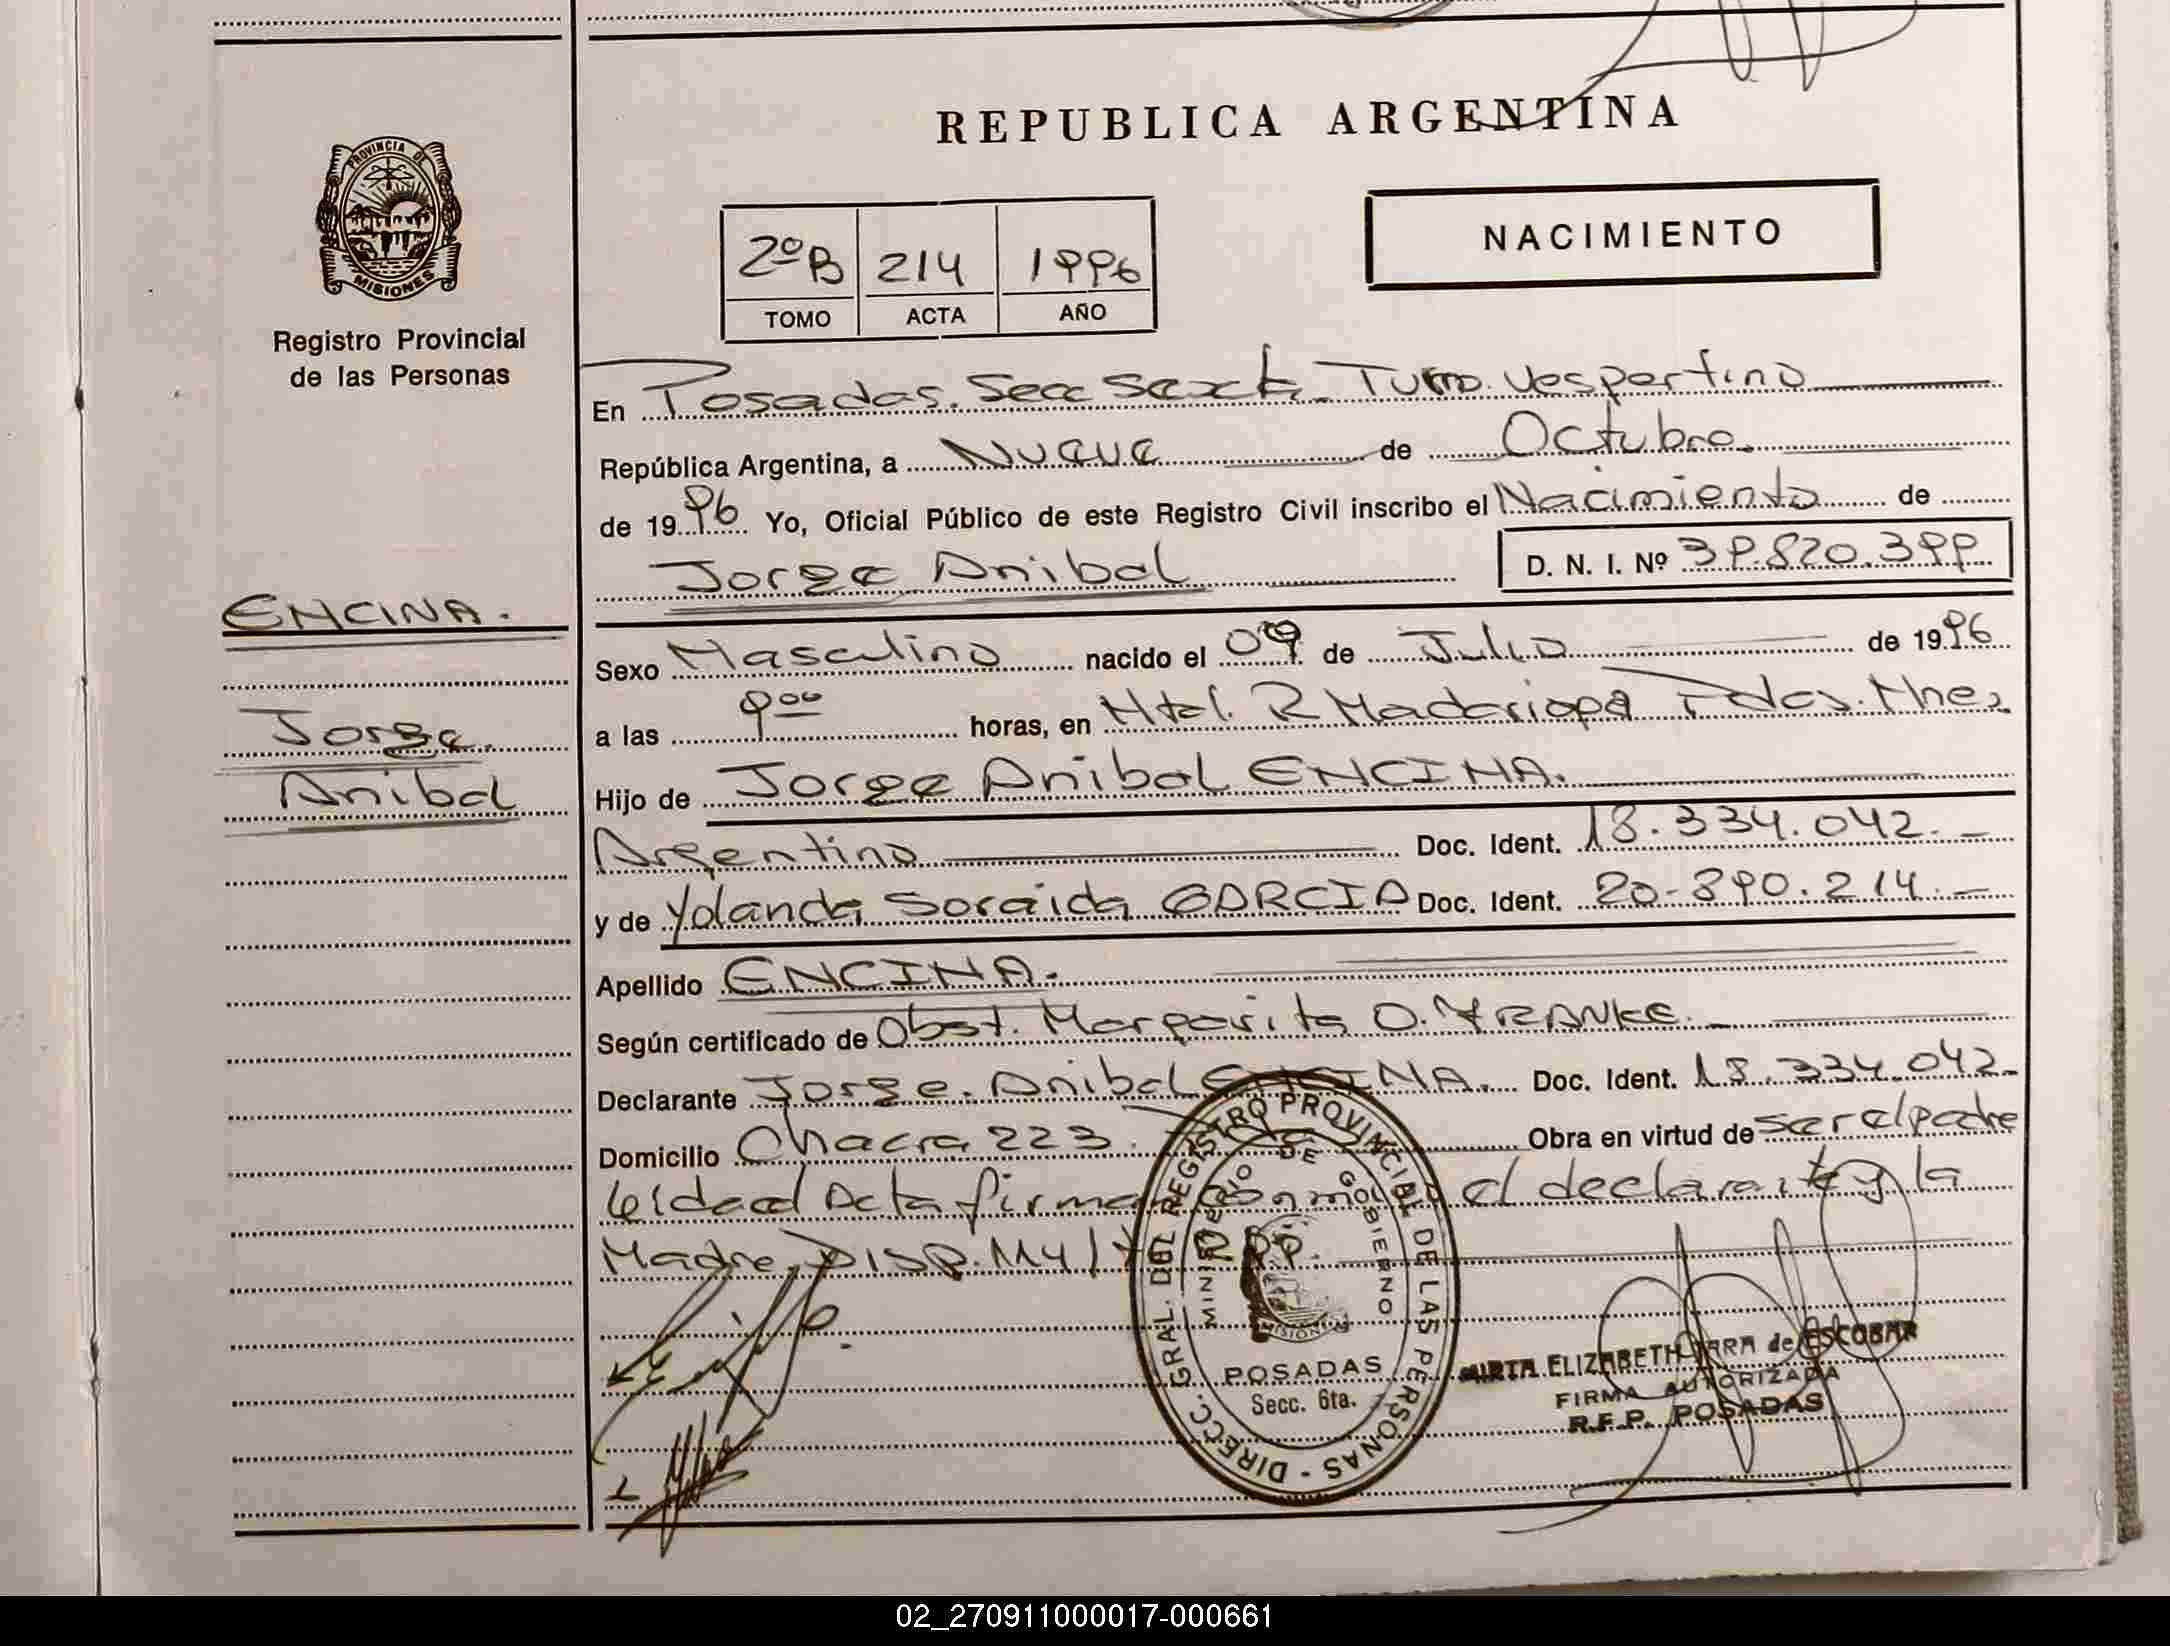 REPUBLICA ARGENTINA
PROVINCIA DE
MISIONES
Registro Provincial
de las Personas
NACIMIENTO
2ºB 214 1996
TOMO ACTA AÑO
En Posadas. Secc Sexta. Turno. Vespertino
República Argentina, a Nueve de Octubre.
de 1996 Yo, Oficial Público de este Registro Civil inscribo el Nacimiento de
Jorge Anibal D. N. I. Nº 39.820.399
ENCINA.
Jorge
Anibal
Sexo Masculino nacido el 09 de Julio de 1996
a las 9 00 horas, en Htal. R Madariaga Pdas. Mnes
Hijo de Jorge Anibal ENCINA.
Argentino Doc. Ident. 18.334.042.-
y de Yolanda Soraida GARCIA Doc. Ident. 20.890.214.-
Apellido ENCINA.
Según certificado de Obst. Margarita O. FRANKE.
Declarante Jorge. Anibal ENCINA. Doc. Ident. 18.334.042.
Domicilio Chacra 223. Obra en virtud de ser el padre
leida el Acta firman conmigo el declarante y la
Madre. DISP. 114/ RPP.
DIRECC. GRAL. DEL REGISTRO PROVINCIAL DE LAS PERSONAS
MINISTERIO DE GOBIERNO
MISIONES
POSADAS
Secc. 6ta.
MIRTA ELIZABETH de ESCOBAR
FIRMA AUTORIZADA
R.F.P. POSADAS
02_270911000017-000661